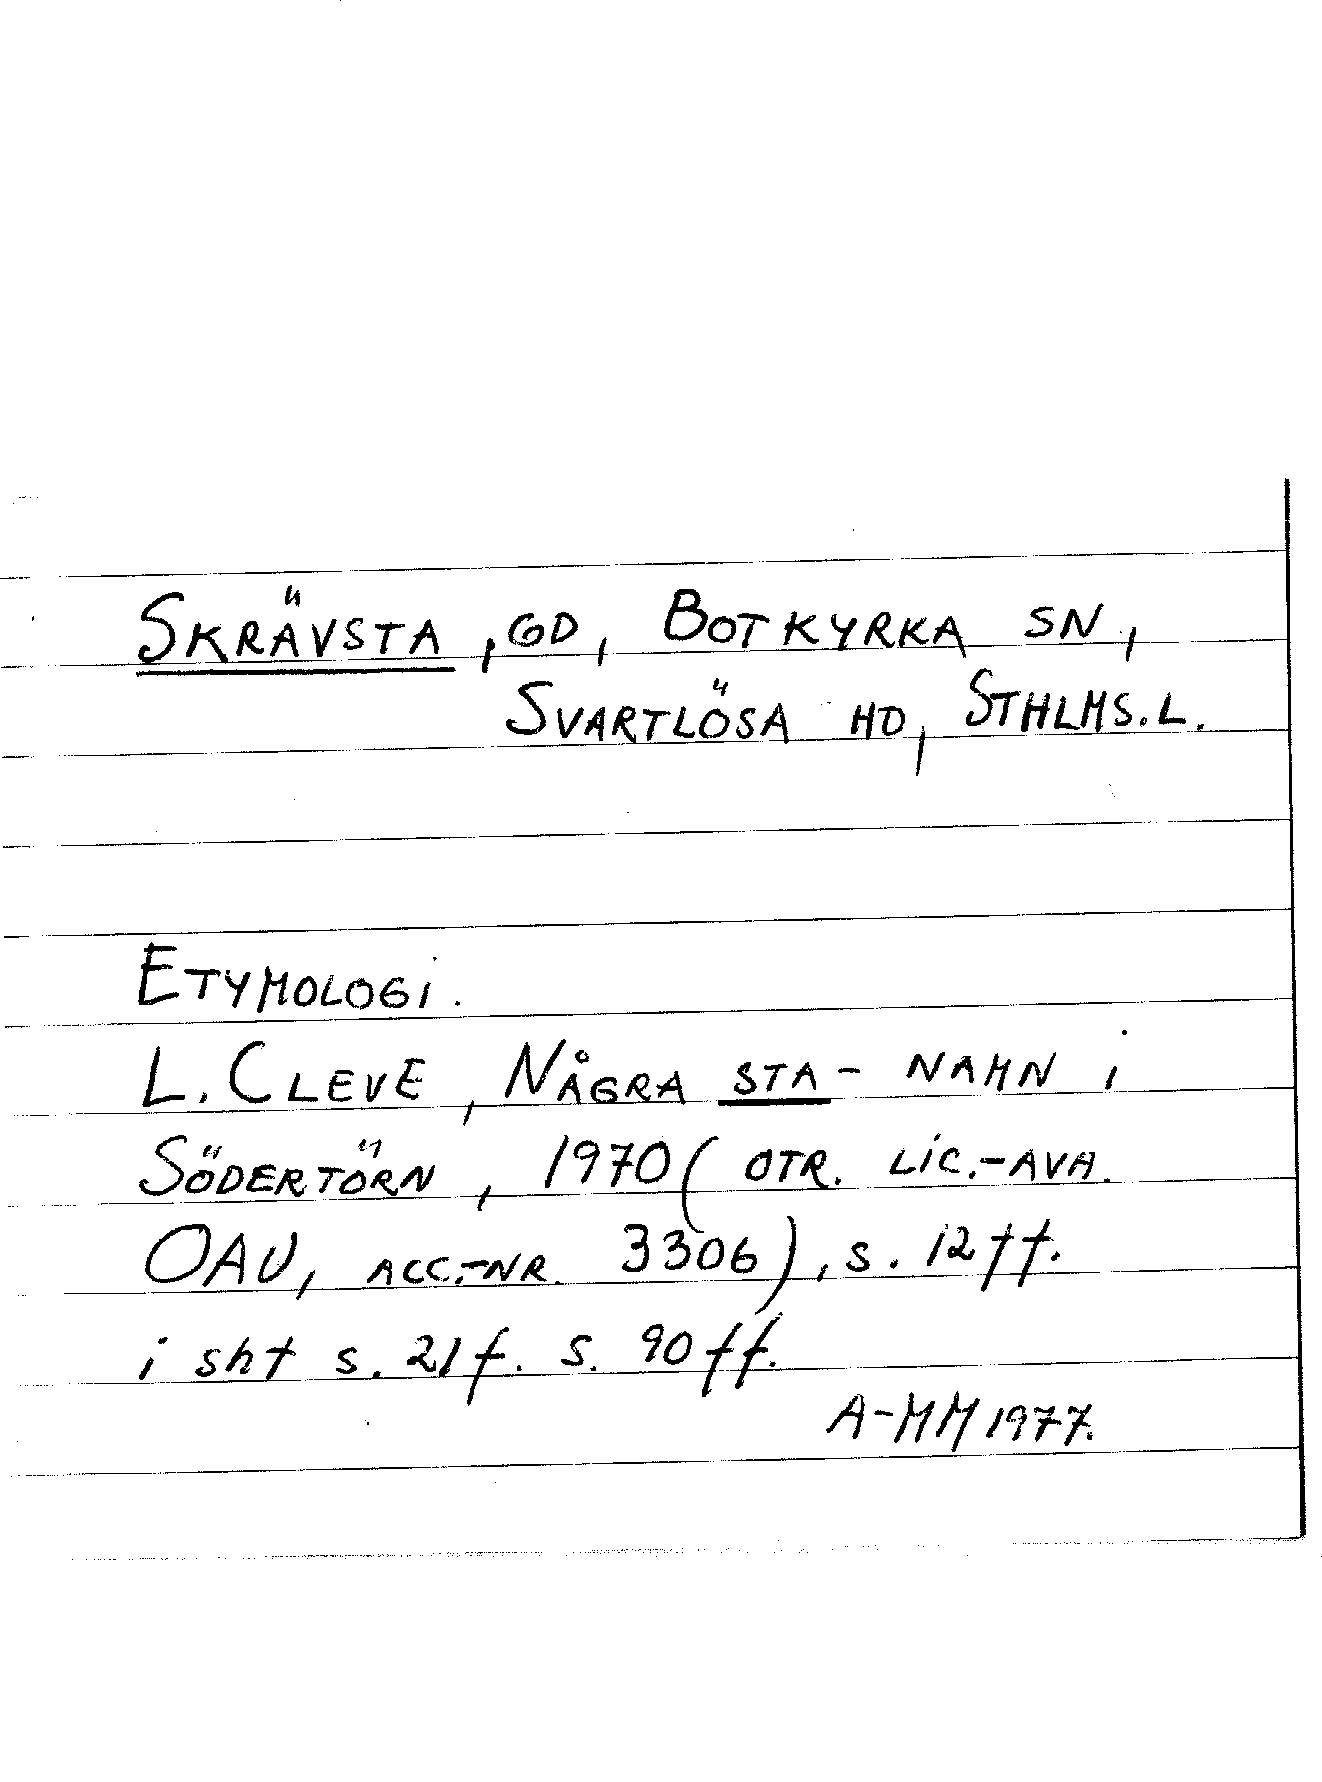 SKRÄVSTA, GD, BOTKYRKA SN,
SVARTLÖSA HD, STHLMS.L.
ETYMOLOGI.
L. CLEVE, NÅGRA STA- NAMN i
SÖDERTÖRN, 1970 (OTR. LIC.-AVH.
OAU, ACC.-NR. 3306), s. 12ff.
i sht s. 21f. s. 90ff.
A-MM 1977.